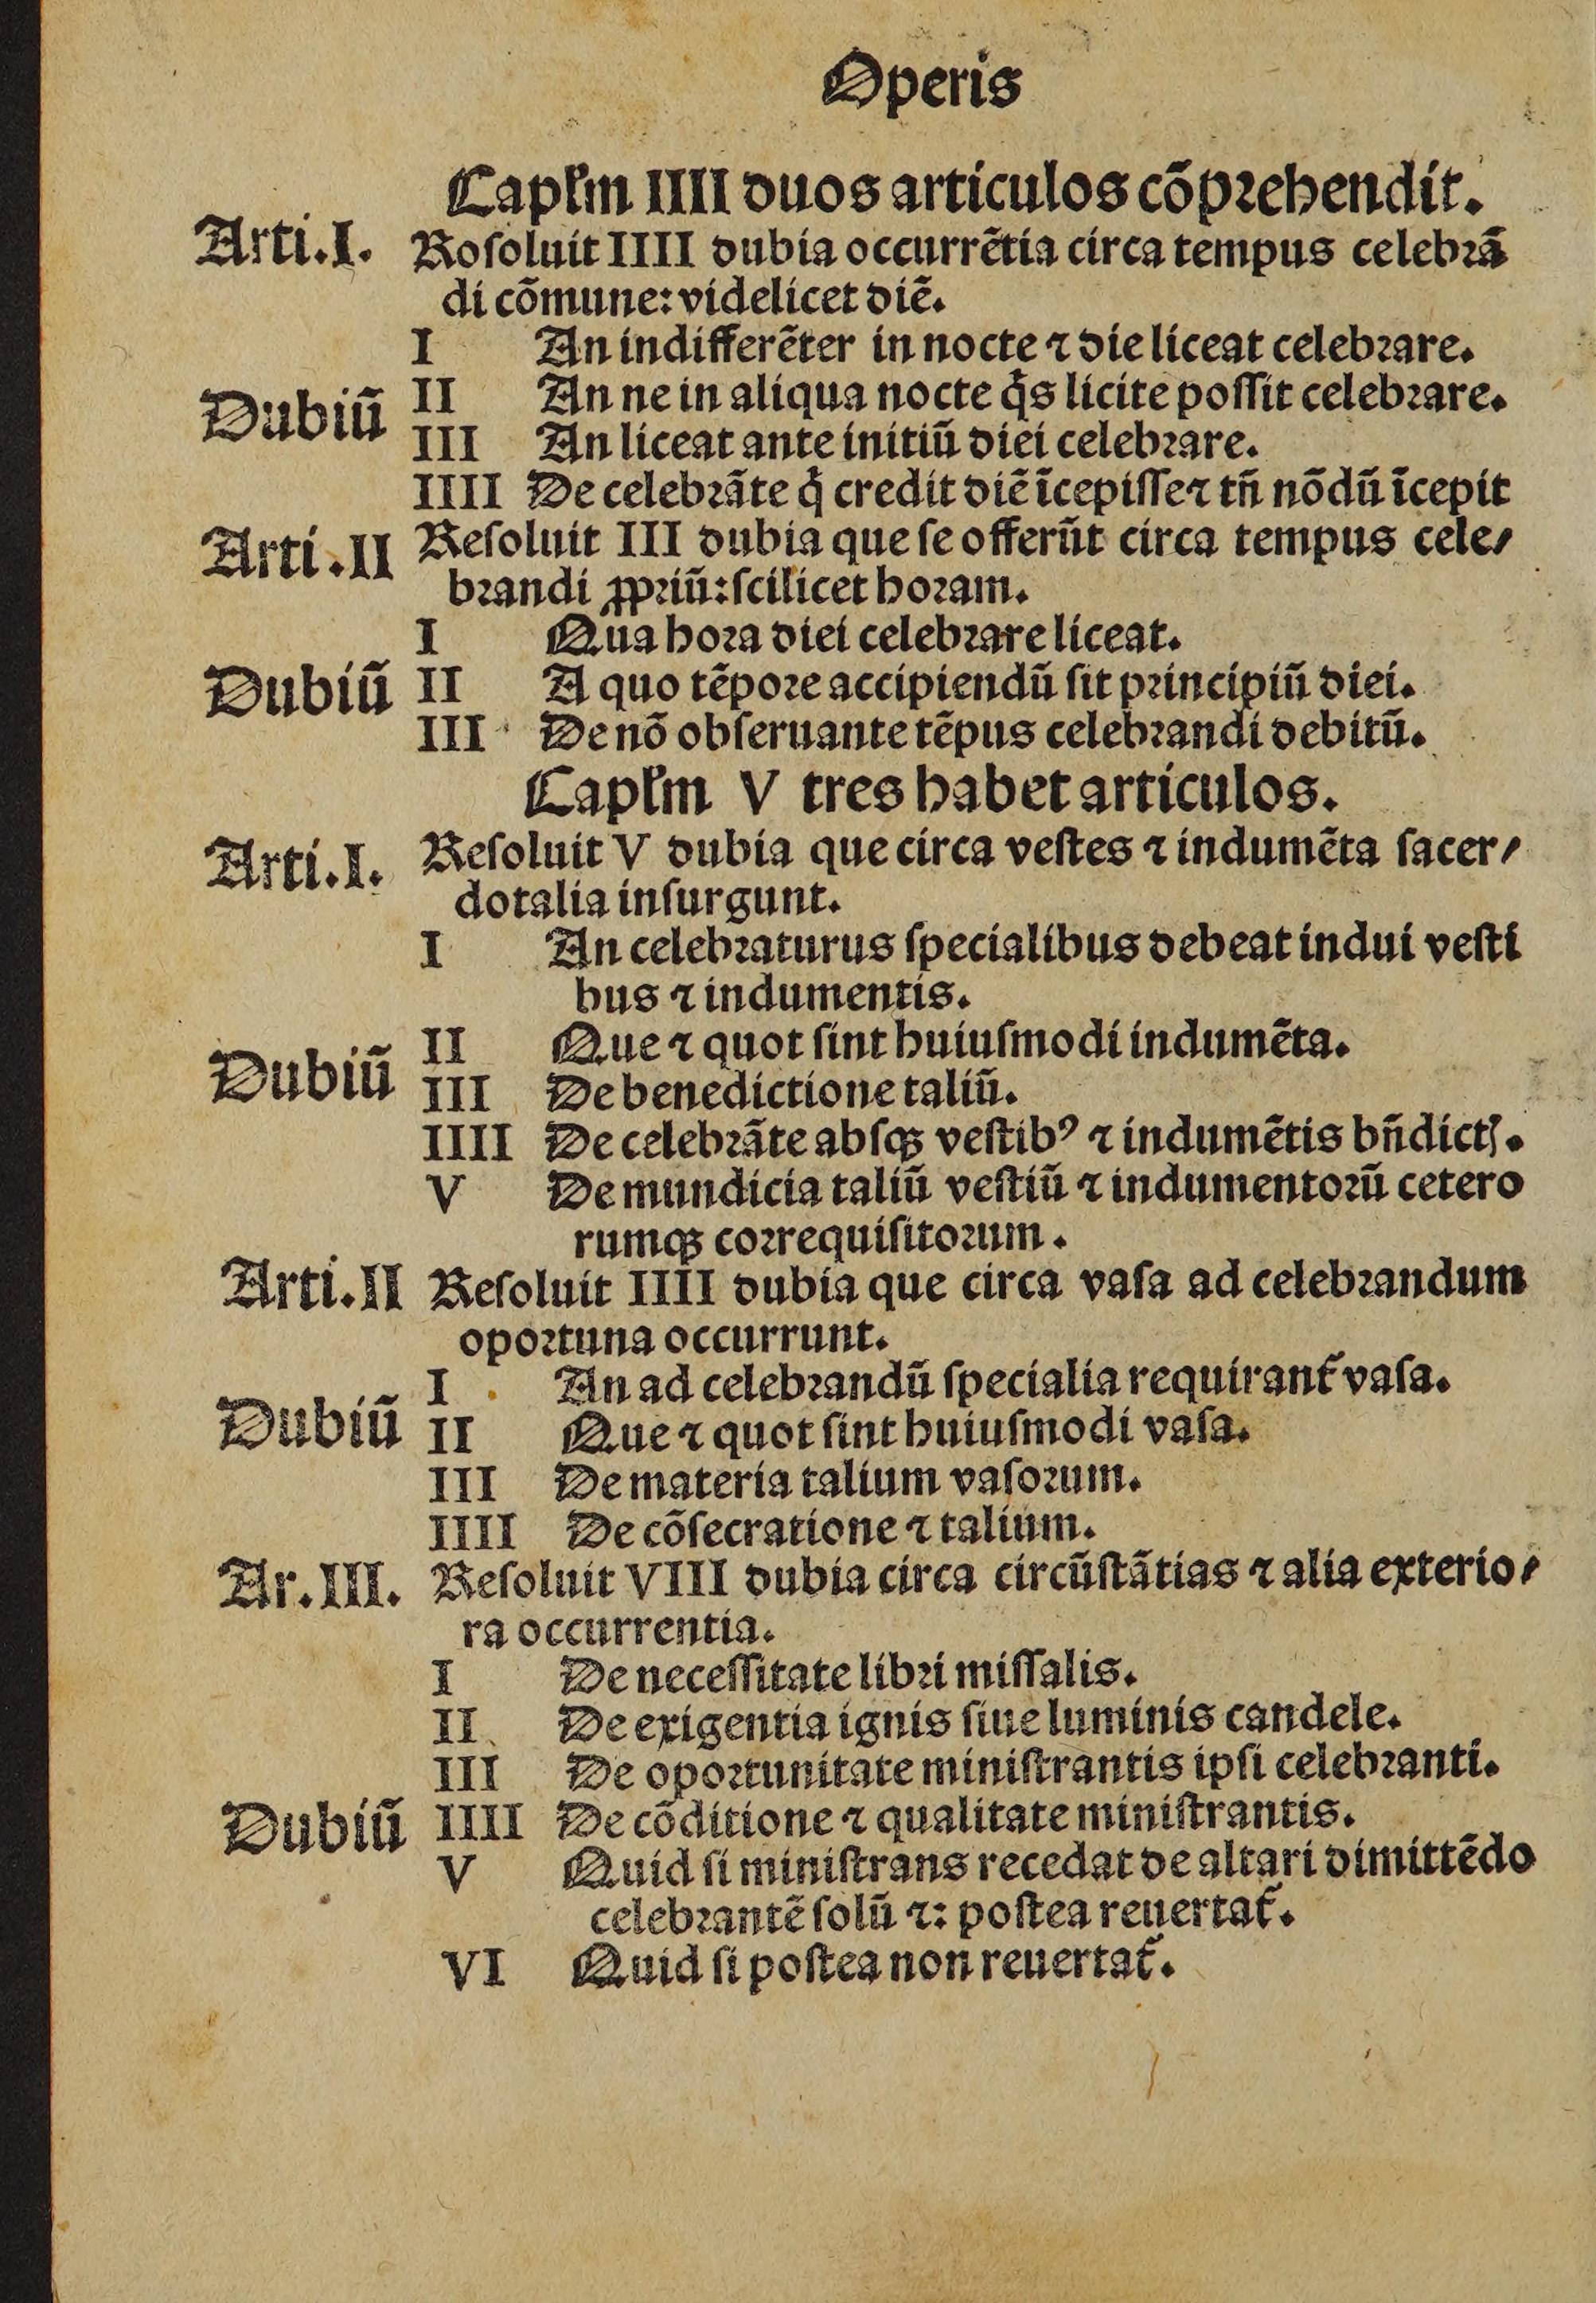 Operis
Capłm IIII duos articulos cõprehendit.
Arti.I. Rosoluit IIII dubia occurrẽtia circa tempus celebrã
di cõmune: videlicet diẽ.
I An indifferẽter in nocte ⁊ die liceat celebrare.
Dubiũ II An ne in aliqua nocte q̇s licite possit celebrare.
III An liceat ante initiũ diei celebrare.
IIII De celebrãte q̇ credit diẽ ĩcepisse ⁊ tñ nõdũ ĩcepit
Arti.II Resoluit III dubia que se offerũt circa tempus cele/
brandi ꝓpriũ: scilicet horam.
I Qua hora diei celebrare liceat.
Dubiũ II A quo tẽpore accipiendũ sit principiũ diei.
III De nõ obseruante tẽpus celebrandi debitũ.
Capłm V tres habet articulos.
Arti.I. Resoluit V dubia que circa vestes ⁊ indumẽta sacer/
dotalia insurgunt.
I An celebraturus specialibus debeat indui vesti
bus ⁊ indumentis.
Dubiũ II Que ⁊ quot sint huiusmodi indumẽta.
III De benedictione taliũ.
IIII De celebrãte absqꝫ vestibꝰ ⁊ indumẽtis bñdictꝭ.
V De mundicia taliũ vestiũ ⁊ indumentorũ cetero
rumqꝫ correquisitorum.
Arti.II Resoluit IIII dubia que circa vasa ad celebrandum
oportuna occurrunt.
I An ad celebrandũ specialia requirant᷑ vasa.
Dubiũ II Que ⁊ quot sint huiusmodi vasa.
III De materia talium vasorum.
IIII De cõsecratione ⁊ talium.
Ar.III. Resoluit VIII dubia circa circũstãtias ⁊ alia exterio/
ra occurrentia.
I De necessitate libri missalis.
II De exigentia ignis siue luminis candele.
III De oportunitate ministrantis ipsi celebranti.
Dubiũ IIII De cõditione ⁊ qualitate ministrantis.
V Quid si ministrans recedat de altari dimittẽdo
celebrantẽ solũ ⁊: postea reuertat᷑.
VI Quid si postea non reuertat᷑.